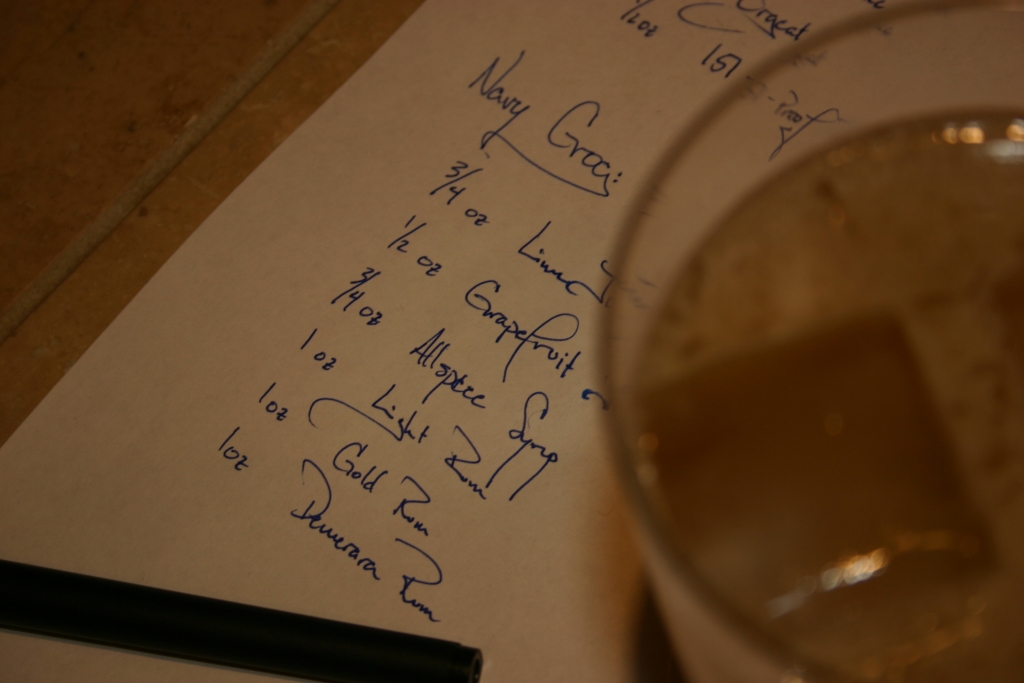 1/2 oz Orgeat
151-Proof
Navy Grog:
3/4 oz Lime
1/2 oz Grapefruit
3/4 oz Allspice Syrup
1 oz Light Rum
1 oz Gold Rum
1 oz Demerara Rum